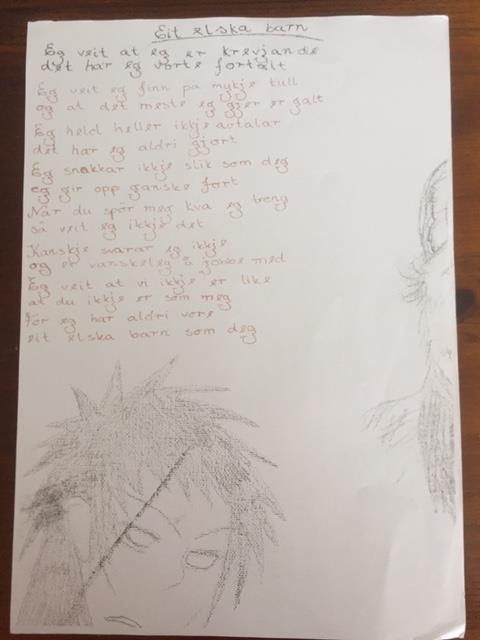 Eit elska barn
Eg veit at eg er krevjande
det har eg vorte fortalt
Eg veit eg finn på mykje tull
og at det meste eg gjer er galt
Eg held heller ikkje avtalar
det har eg aldri gjort
Eg snakkar ikkje slik som deg
eg gir opp ganske fort
Når du spör meg kva eg treng
så veit eg ikkje det
Kanskje svarar eg ikkje
og er vanskeleg å jobbe med
Eg veit at vi ikkje er like
at du ikkje er som meg
For eg har aldri vore
eit elska barn som deg.